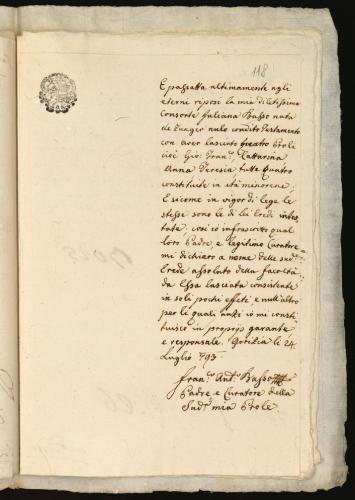 118
E passatta ultimamente agli
eterni riposi la mia diletissima
Consorte Juliana Basso nata
de nulo condito Testamento
con aver lasciato quatro Proli
cioè Gio: Fran.co, Cattarina
Anna Teresia, tutte quatro
constituite in età minorene,
E sicome in vigor di lege le
stesse sono le di lei Eredi intes-
tate, così io infrascritto qual
loro Padre, e legitimo Curatore
mi dichiaro a nome delle sud.te
Erede assoluto della facoltà
da Essa lasciata consistente
in soli pochi effeti e null'altro
per li quali anzi io mi consti-
tuisco in proprio garante,
e responsale. Gorizia li 24
Luglio 793
Fran.co Ant.o Basso
Padre e Curatore della
Sud.a mia Prole